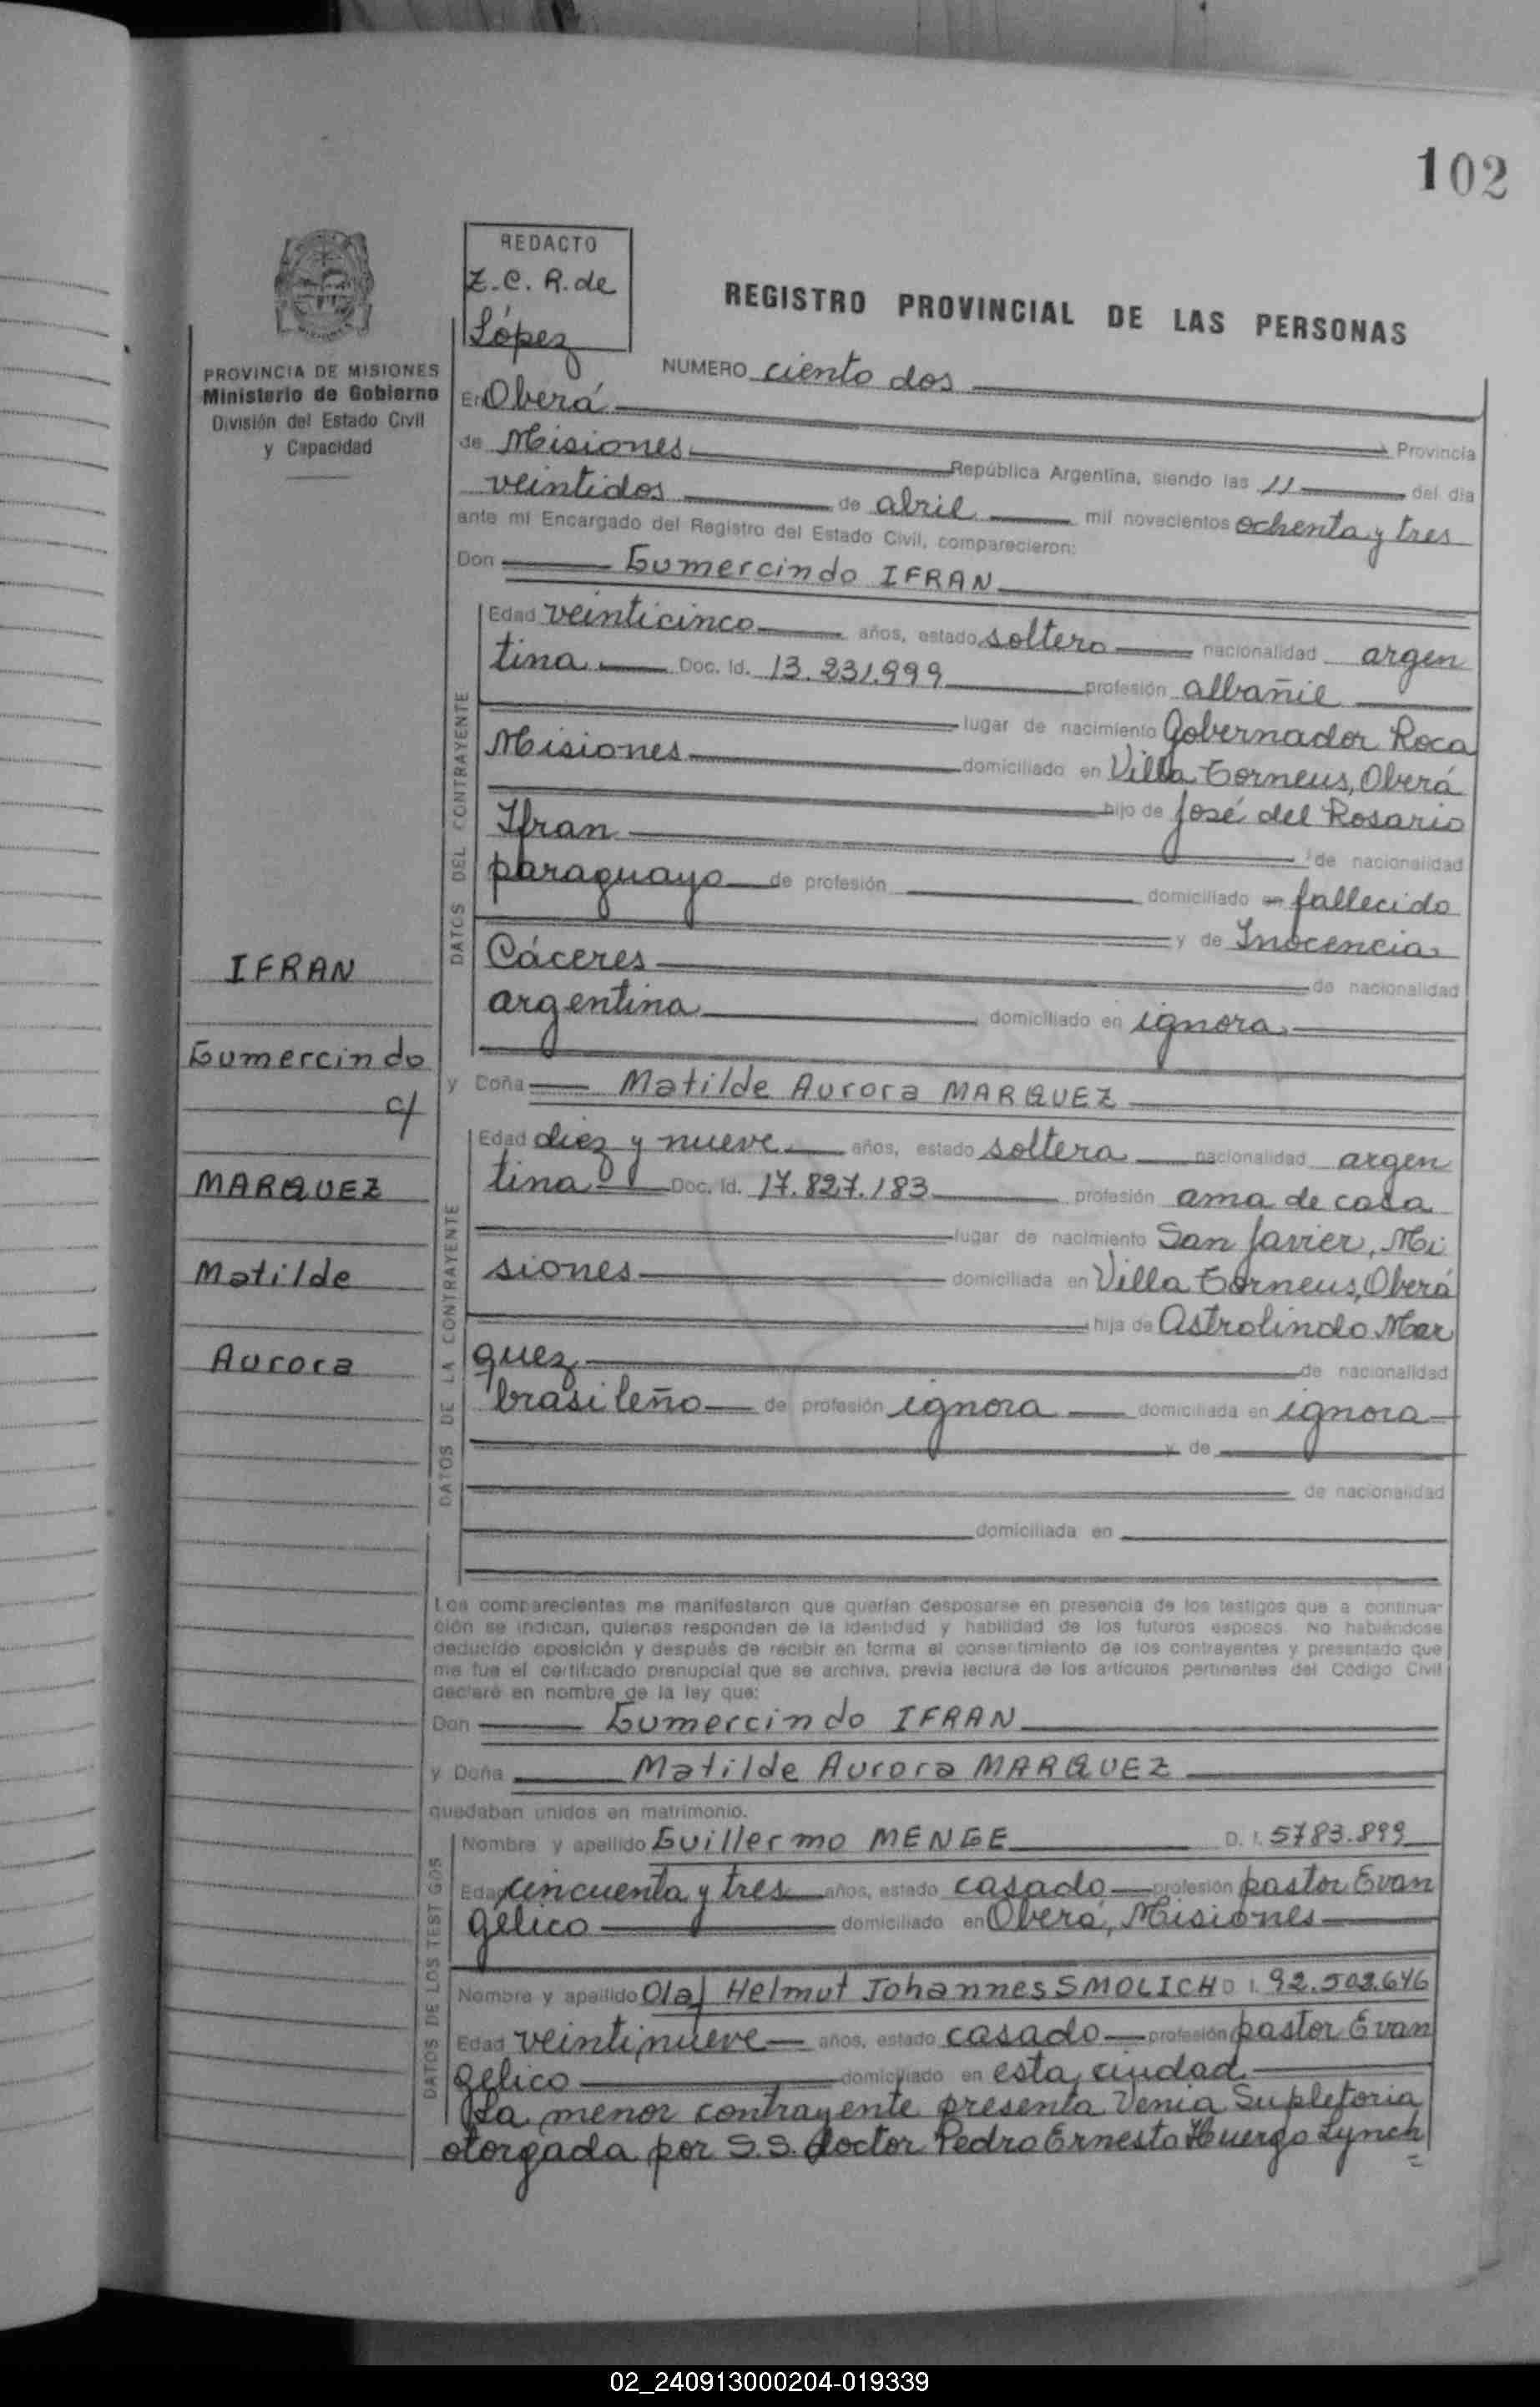 102
REDACTO
Z.C.R. de
López
REGISTRO PROVINCIAL DE LAS PERSONAS
PROVINCIA DE MISIONES
Ministerio de Gobierno
División del Estado Civil
y Capacidad
NUMERO ciento dos
En Oberá
Provincia
de Misiones República Argentina, siendo las 11 del día
veintidos de abril mil novecientos ochenta y tres
ante mi Encargado del Registro del Estado Civil, comparecieron:
Don Gumercindo IFRAN
DATOS DEL CONTRAYENTE
Edad veinticinco años, estado soltero nacionalidad argen
tina Doc. Id. 13.231.999 profesión albañil
lugar de nacimiento Gobernador Roca
Misiones domiciliado en Villa Torneus, Oberá
hijo de José del Rosario
Ifran de nacionalidad
paraguayo de profesión domiciliado en fallecido
y de Inocencia
Cáceres de nacionalidad
argentina domiciliado en ignora
y Doña Matilde Aurora MARQUEZ
DATOS DE LA CONTRAYENTE
Edad diez y nueve años, estado soltera nacionalidad argen
tina Doc. Id. 17.827.183 profesión ama de casa
lugar de nacimiento San Javier, Mi
siones domiciliada en Villa Torneus, Oberá
hija de Astrolindo Mar
quez de nacionalidad
brasileño de profesión ignora domiciliada en ignora
y de
de nacionalidad
domiciliada en
IFRAN
Gumercindo
c/
MARQUEZ
Matilde
Aurora
Los comparecientes me manifestaron que querían desposarse en presencia de los testigos que a continua-
ción se indican, quienes responden de la identidad y habilidad de los futuros esposos. No habiéndose
deducido oposición y después de recibir en forma el consentimiento de los contrayentes y presentado que
me fue el certificado prenupcial que se archiva, previa lectura de los artículos pertinentes del Código Civil
declaré en nombre de la ley que:
Don Gumercindo IFRAN
y Doña Matilde Aurora MARQUEZ
quedaban unidos en matrimonio.
DATOS DE LOS TESTIGOS
Nombre y apellido Guillermo MENGE D. I. 5783.899
Edad cincuenta y tres años, estado casado profesión pastor Evan
gélico domiciliado en Oberá, Misiones
Nombre y apellido Olaf Helmut Johannes SMOLICH D. I. 92.502.646
Edad veintinueve años, estado casado profesión pastor Evan
gélico domiciliado en esta ciudad
La menor contrayente presenta Venia Supletoria
otorgada por S.S. doctor Pedro Ernesto Huergo Lynch
02_240913000204-019339